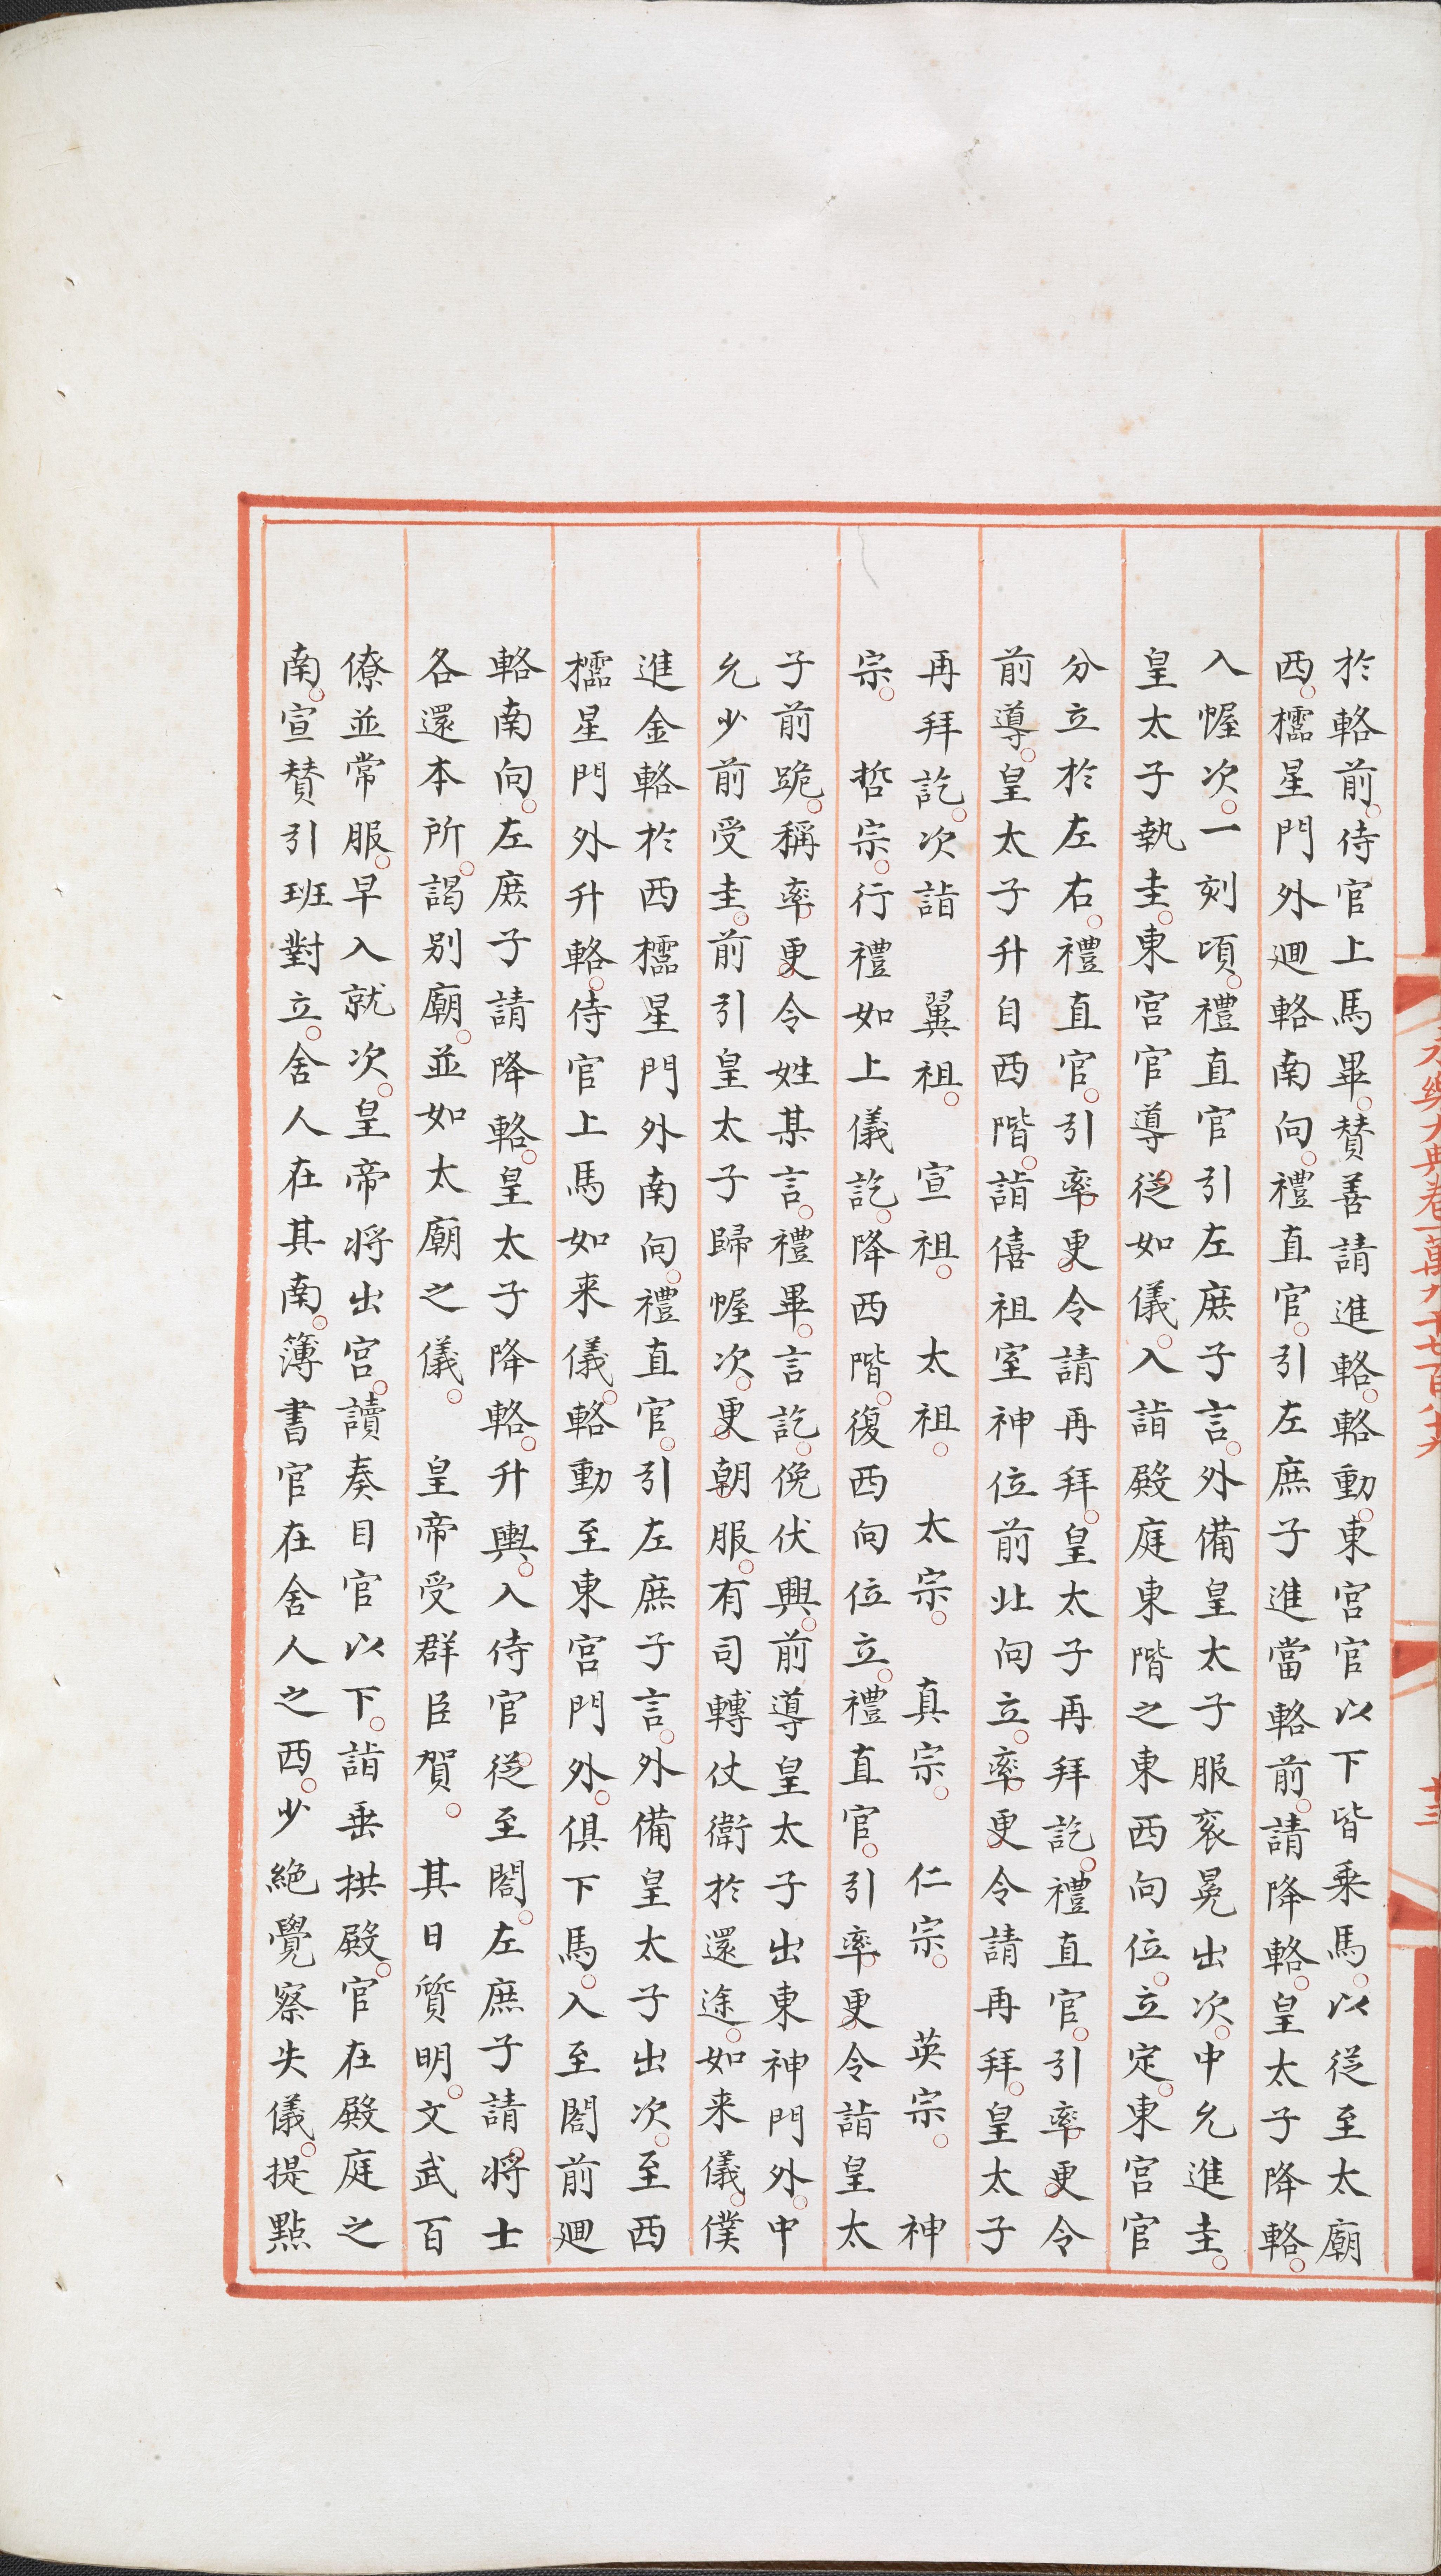 於輅前。侍官上馬畢。贊善請進輅。輅動。東宮官以下皆乘馬。以從至太廟
西。櫺星門外廻輅南向。禮直官。引左庶子進當輅前。請降輅。皇太子降輅。
入幄次。一刻頃。禮直官引左庶子言。外備皇太子服衮冕出次。中允進圭。
皇太子執圭。東宮官導從如儀。入詣殿庭東階之東西向位。立定。東宮官
分立於左右。禮直官。引率更令請再拜。皇太子再拜訖。禮直官。引率更令
前導。皇太子升自西階。詣僖祖室神位前北向立。率更令請再拜。皇太子
再拜訖。次詣　翼祖。　宣祖。　太祖。　太宗。　真宗。　仁宗。　英宗。　神
宗。　哲宗。行禮如上儀訖。降西階。復西向位立。禮直官。引率更令詣皇太
子前跪。稱率更令姓某言。禮畢。言訖。俛伏興。前導皇太子出東神門外。中
允少前受圭。前引皇太子歸幄次。更朝服。有司轉仗衛於還途。如来儀。僕
進金輅於西櫺星門外南向。禮直官。引左庶子言。外備皇太子出次。至西
櫺星門外升輅。侍官上馬如来儀。輅動至東宮門外。俱下馬。入至閤前廻
輅南向。左庶子請降輅。皇太子降輅。升輿。入侍官從至閤。左庶子請將士
各還本所。謁別廟。並如太廟之儀。　皇帝受群臣賀。　其日質明。文武百
僚並常服。早入就次。皇帝將出宮。讀奏目官以下。詣垂拱殿。官在殿庭之
南。宣贊引班對立。舍人在其南。簿書官在舍人之西。少絶覺察失儀。提點
永樂大典卷一萬九千七百八十六
廿三